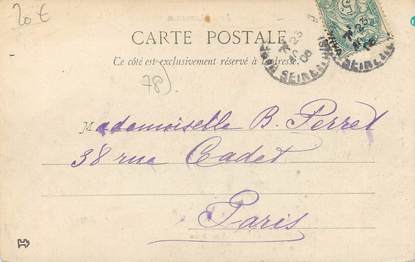 20 €
CARTE POSTALE
Ce côté est exclusivement réservé à l'adresse.
78)
Mademoiselle B. Perret
38 rue Cadet
Paris